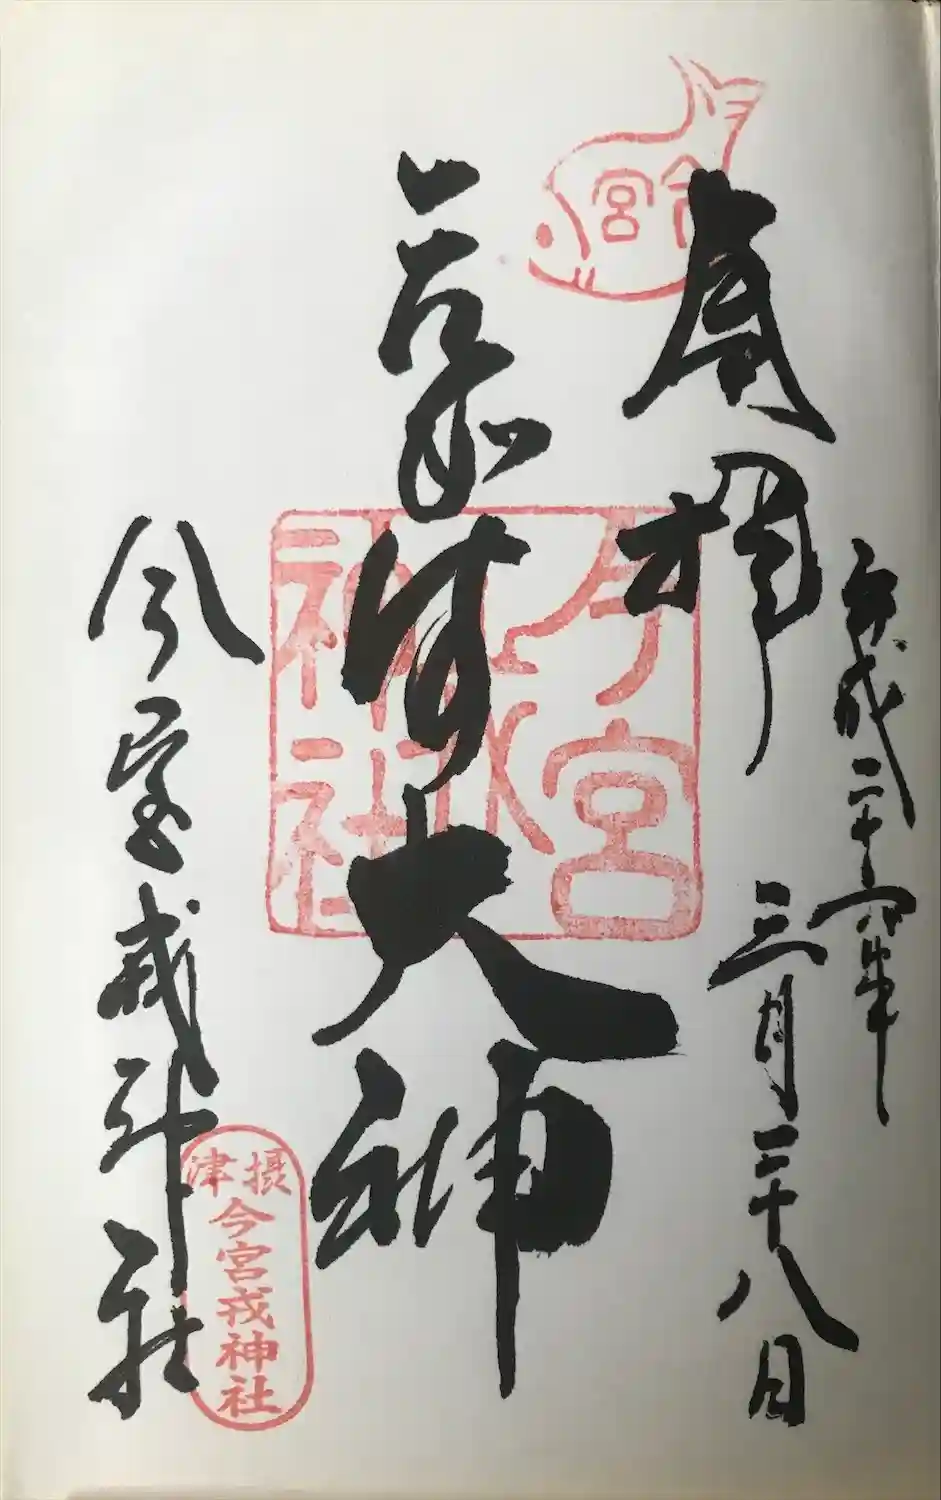 今宮
奉拝
平成二十六年
三月二十八日
恵美須大神
今宮戎神社
今宮戎神社
摂津
今宮戎神社